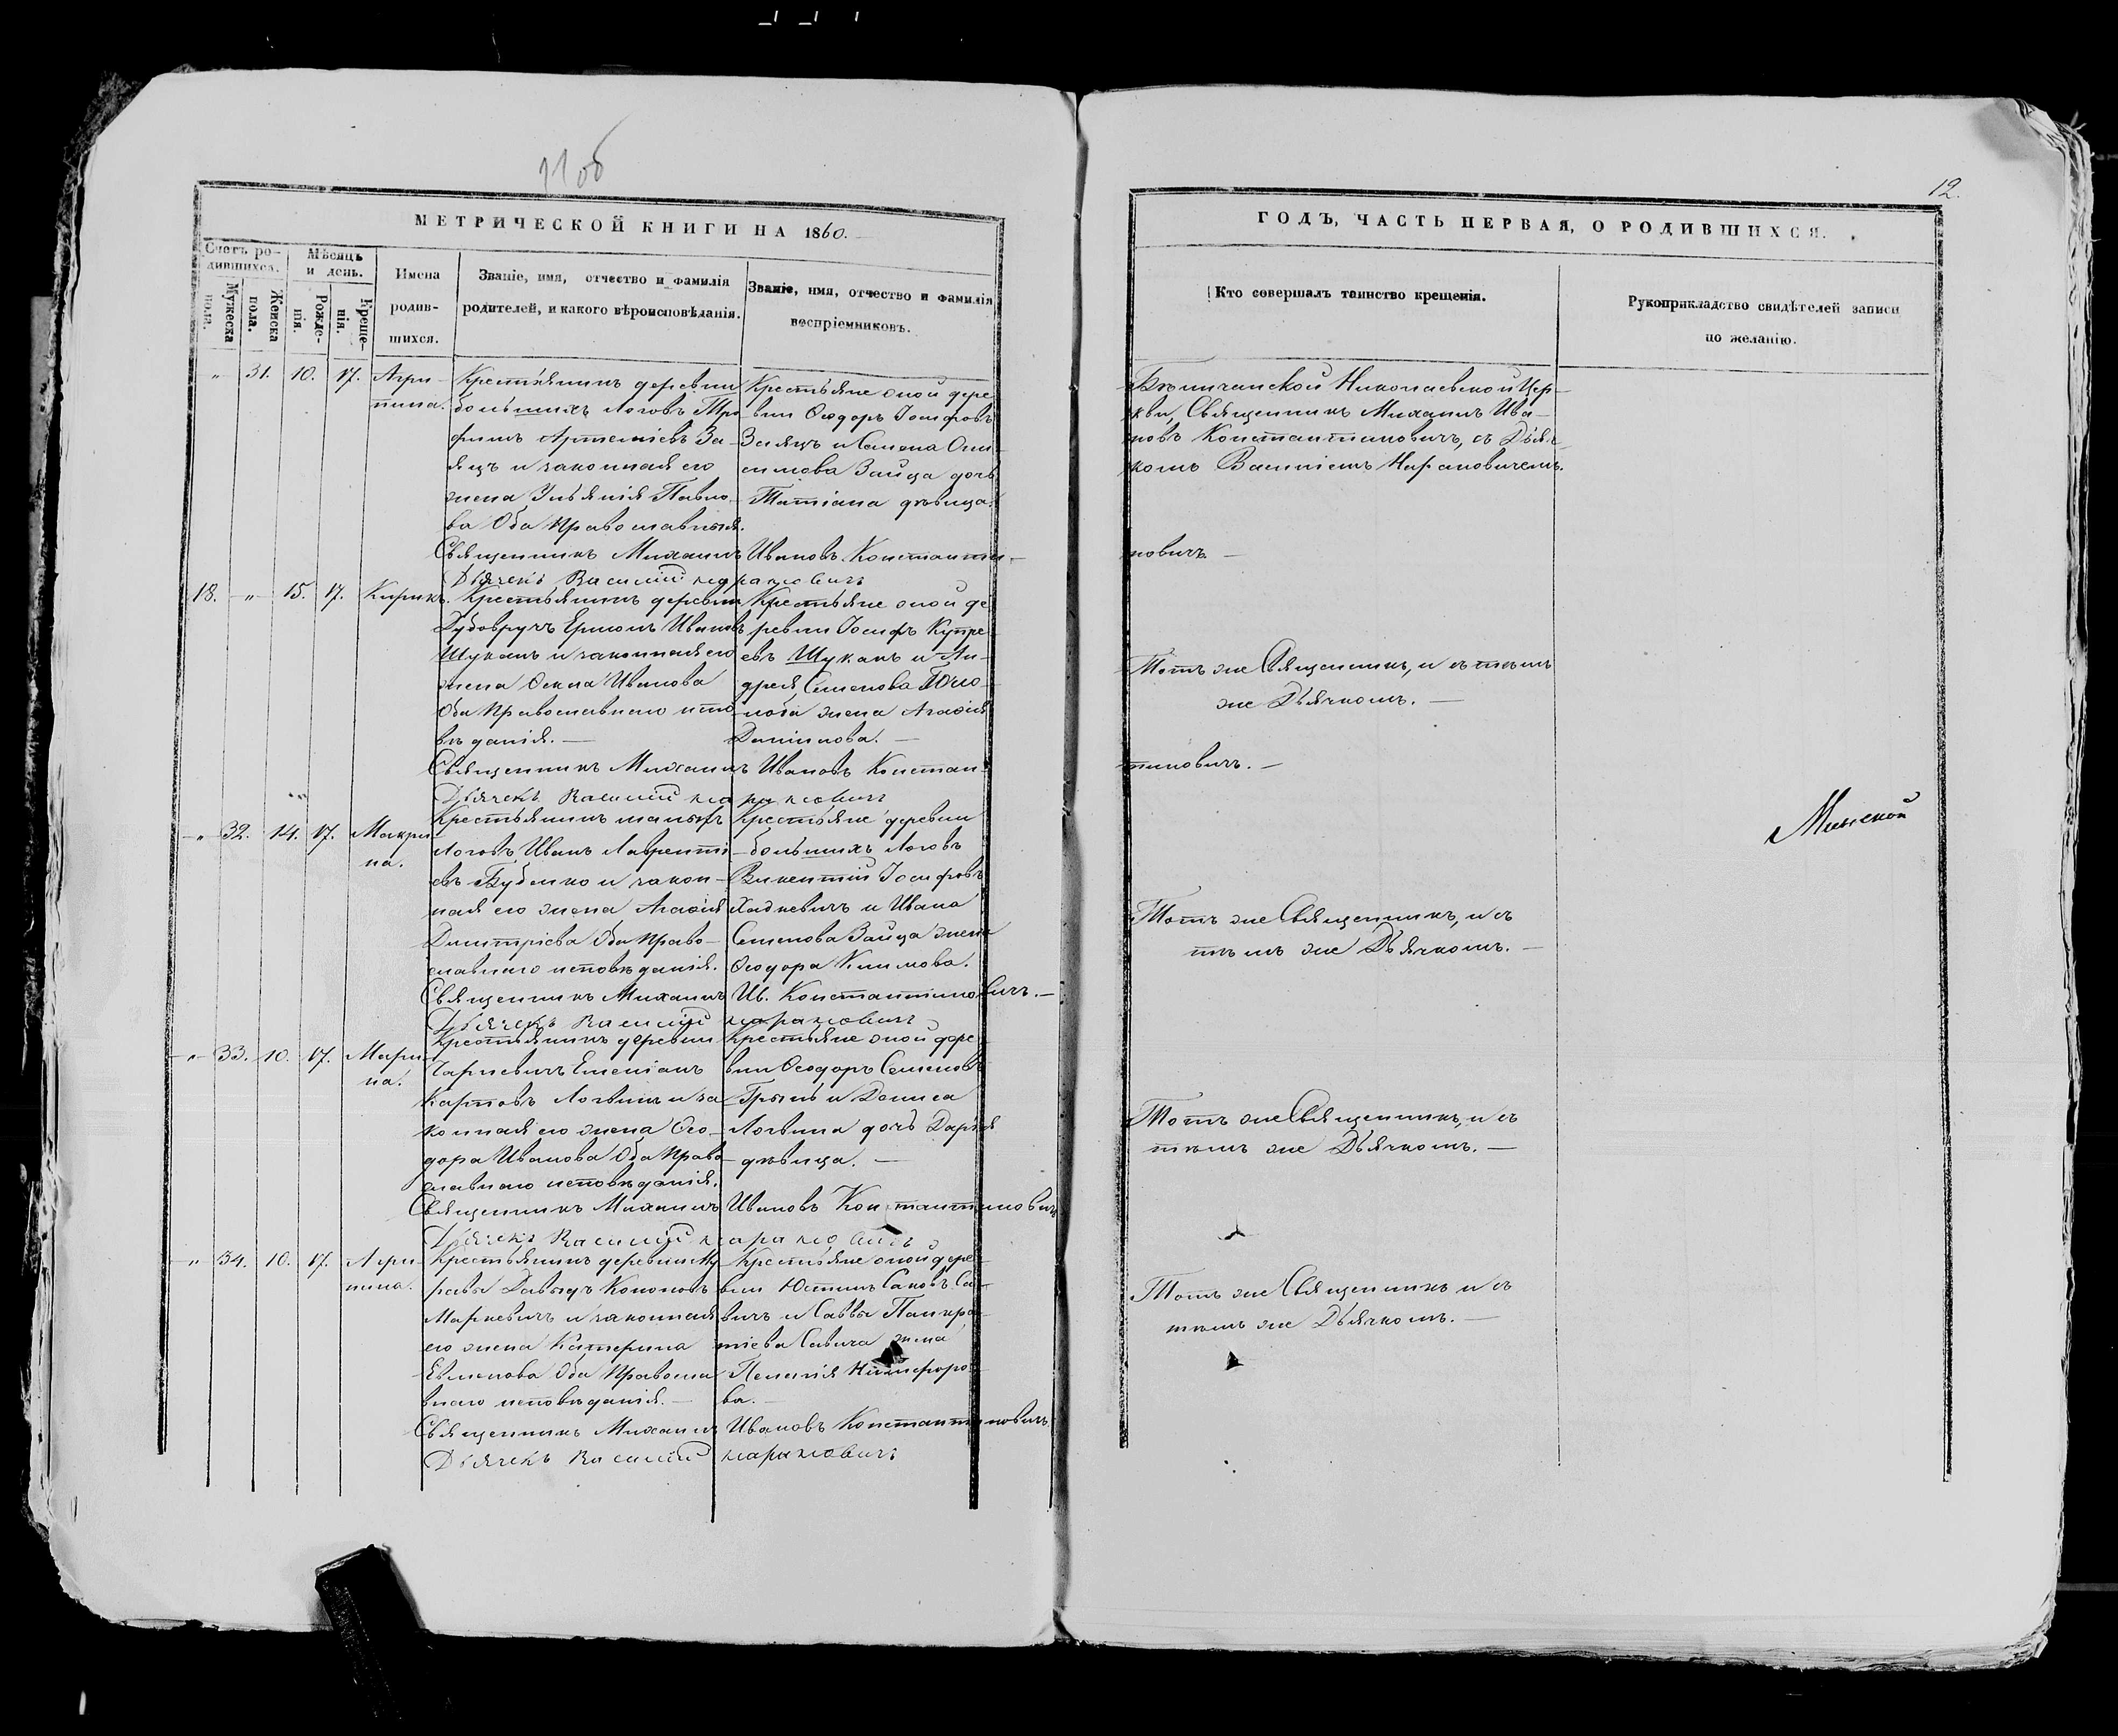 11 об
МЕТРИЧЕСКОЙ КНИГИ НА 1860.
Счетъ ро-
дившихся.
Мужеска
пола.
Женска
пола.
Мѣсяцъ
и день.
Рожде-
нія.
Креще-
нія.
Имена
родив-
шихся.
Званіе, имя, отчество и фамилія
родителей, и какого вѣроисповѣданія.
Званіе, имя, отчество и фамилія
воспріемниковъ.
„ 31. 10. 17. Агри-
пина.
Крестьянинъ деревни
большихъ Логовъ Тро-
фимъ Артеміевъ За-
яцъ и законная его
жена Ульянія Павло-
ва Оба православныя.
Крестьяне оной дере-
вни Ѳеодоръ Іосифовъ
Заяцъ и Семена Они-
симова Зайца дочь
Татіана дѣвица.
Священникъ Михаилъ Ивановъ Константи-
Дьячекъ Василий
18. „ 15. 17. Кирикъ.
Крестьянинъ деревни
Дубовручъ Ермолъ Ивановъ
Шуканъ и законная его
жена Ѳекла Иванова
Оба Православнаго испо-
вѣданія. —
Крестьяне оной де-
ревни Іосифъ Купре-
евъ Шуканъ и Ан-
дрея Семенова
жена Агафія
Данилова. —
Священникъ Михаилъ Ивановъ Констан-
Дьячекъ Василий
„ 32. 14. 17. Макри-
на.
Крестьянинъ малыхъ
Логовъ Иванъ Лавренті-
евъ Бубенко и закон-
ная его жена Агафія
Димитріева Оба Право-
славнаго исповѣданія.
Крестьяне деревни
большихъ Логовъ
Викентій Іосифовъ
Хадкевичъ и Ивана
Семенова Зайца жена
Ѳеодора Климова.
Священникъ Михаилъ Ив. Константиновичъ. —
Дьячекъ Василий
„ 33. 10. 17. Мари-
на.
Крестьянинъ деревни
Емеліанъ
Карповъ Логвинъ и за-
конная его жена Ѳео-
дора Иванова Оба Право-
славнаго исповѣданія.
Крестьяне оной дере-
вни Ѳеодоръ Семеновъ
и Дениса
Логвина дочь Дарія
дѣвица. —
Священникъ Михаилъ Ивановъ Константиновичъ
Дьячекъ Василий
„ 34. 10. 17. Агри-
пина.
Крестьянинъ деревни Му-
равы Давыдъ Кононовъ
Маркевичъ и законная
его жена Катерина
Оба Правосла-
внаго исповѣданія. —
Крестьяне оной дере-
вни Юстинъ Саковъ Са-
вичъ и Саввы Панкра-
тіева Савича жена
Пелагія Никифоро-
ва. —
Священникъ Михаилъ Ивановъ Константиновичъ
Дьячекъ Василий
12.
ГОДЪ, ЧАСТЬ ПЕРВАЯ, О РОДИВШИХСЯ.
Кто совершалъ таинство крещенія.
Рукоприкладство свидѣтелей записи
по желанію.
Николаевской Цер-
кви, Священникъ Михаилъ Ива-
новъ Константиновичъ, съ Дьяч-
комъ Василіемъ
новичъ —
Тотъ же Священникъ, и съ тѣмъ
же Дьячкомъ. —
тиновичъ. —
Минской
Тотъ же Священникъ, и съ
тѣмъ же Дьячкомъ. —
Тотъ же Священникъ, и съ
тѣмъ же Дьячкомъ. —
Тотъ же Священникъ и съ
тѣмъ же Дьячкомъ. —